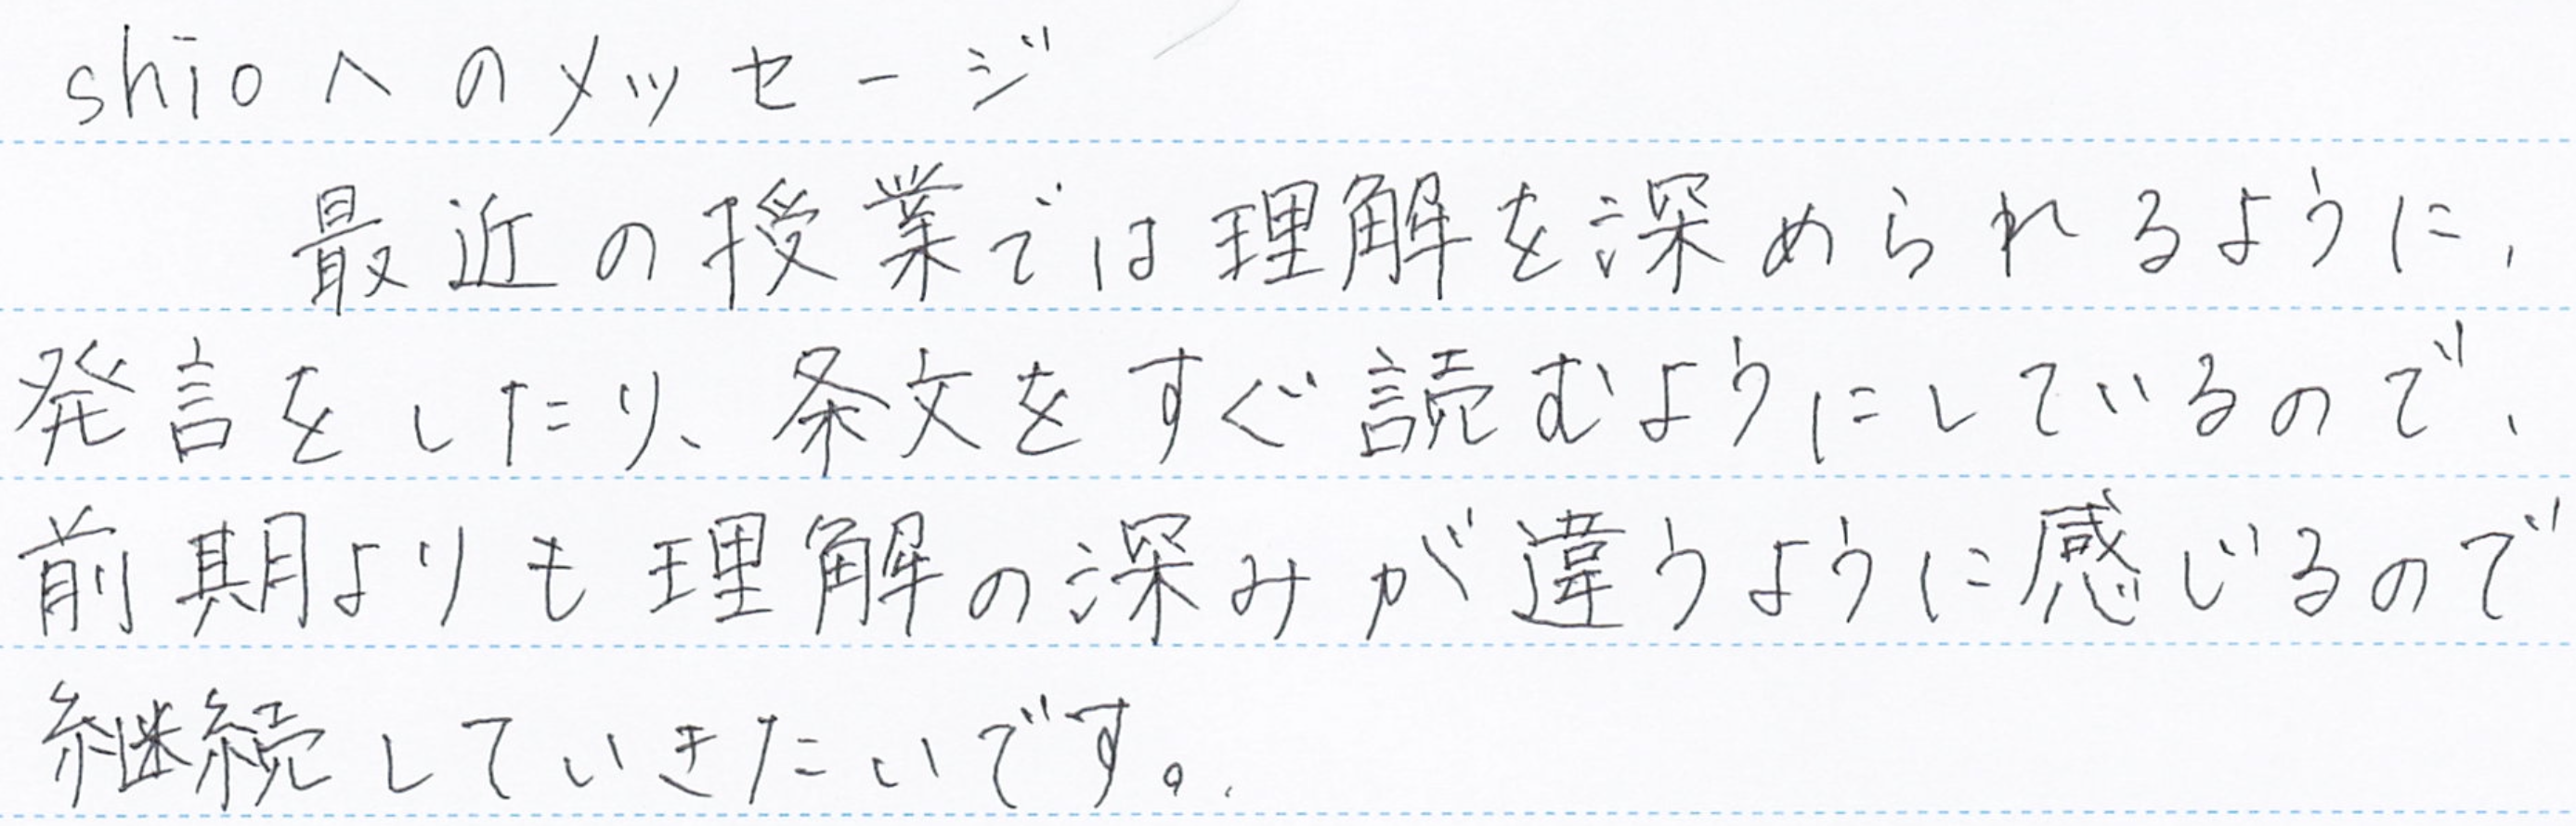 shioへのメッセージ
最近の授業では理解を深められるように、
発言をしたり、条文をすぐ読むようにしているので、
前期よりも理解の深みが違うように感じるので
継続していきたいです。